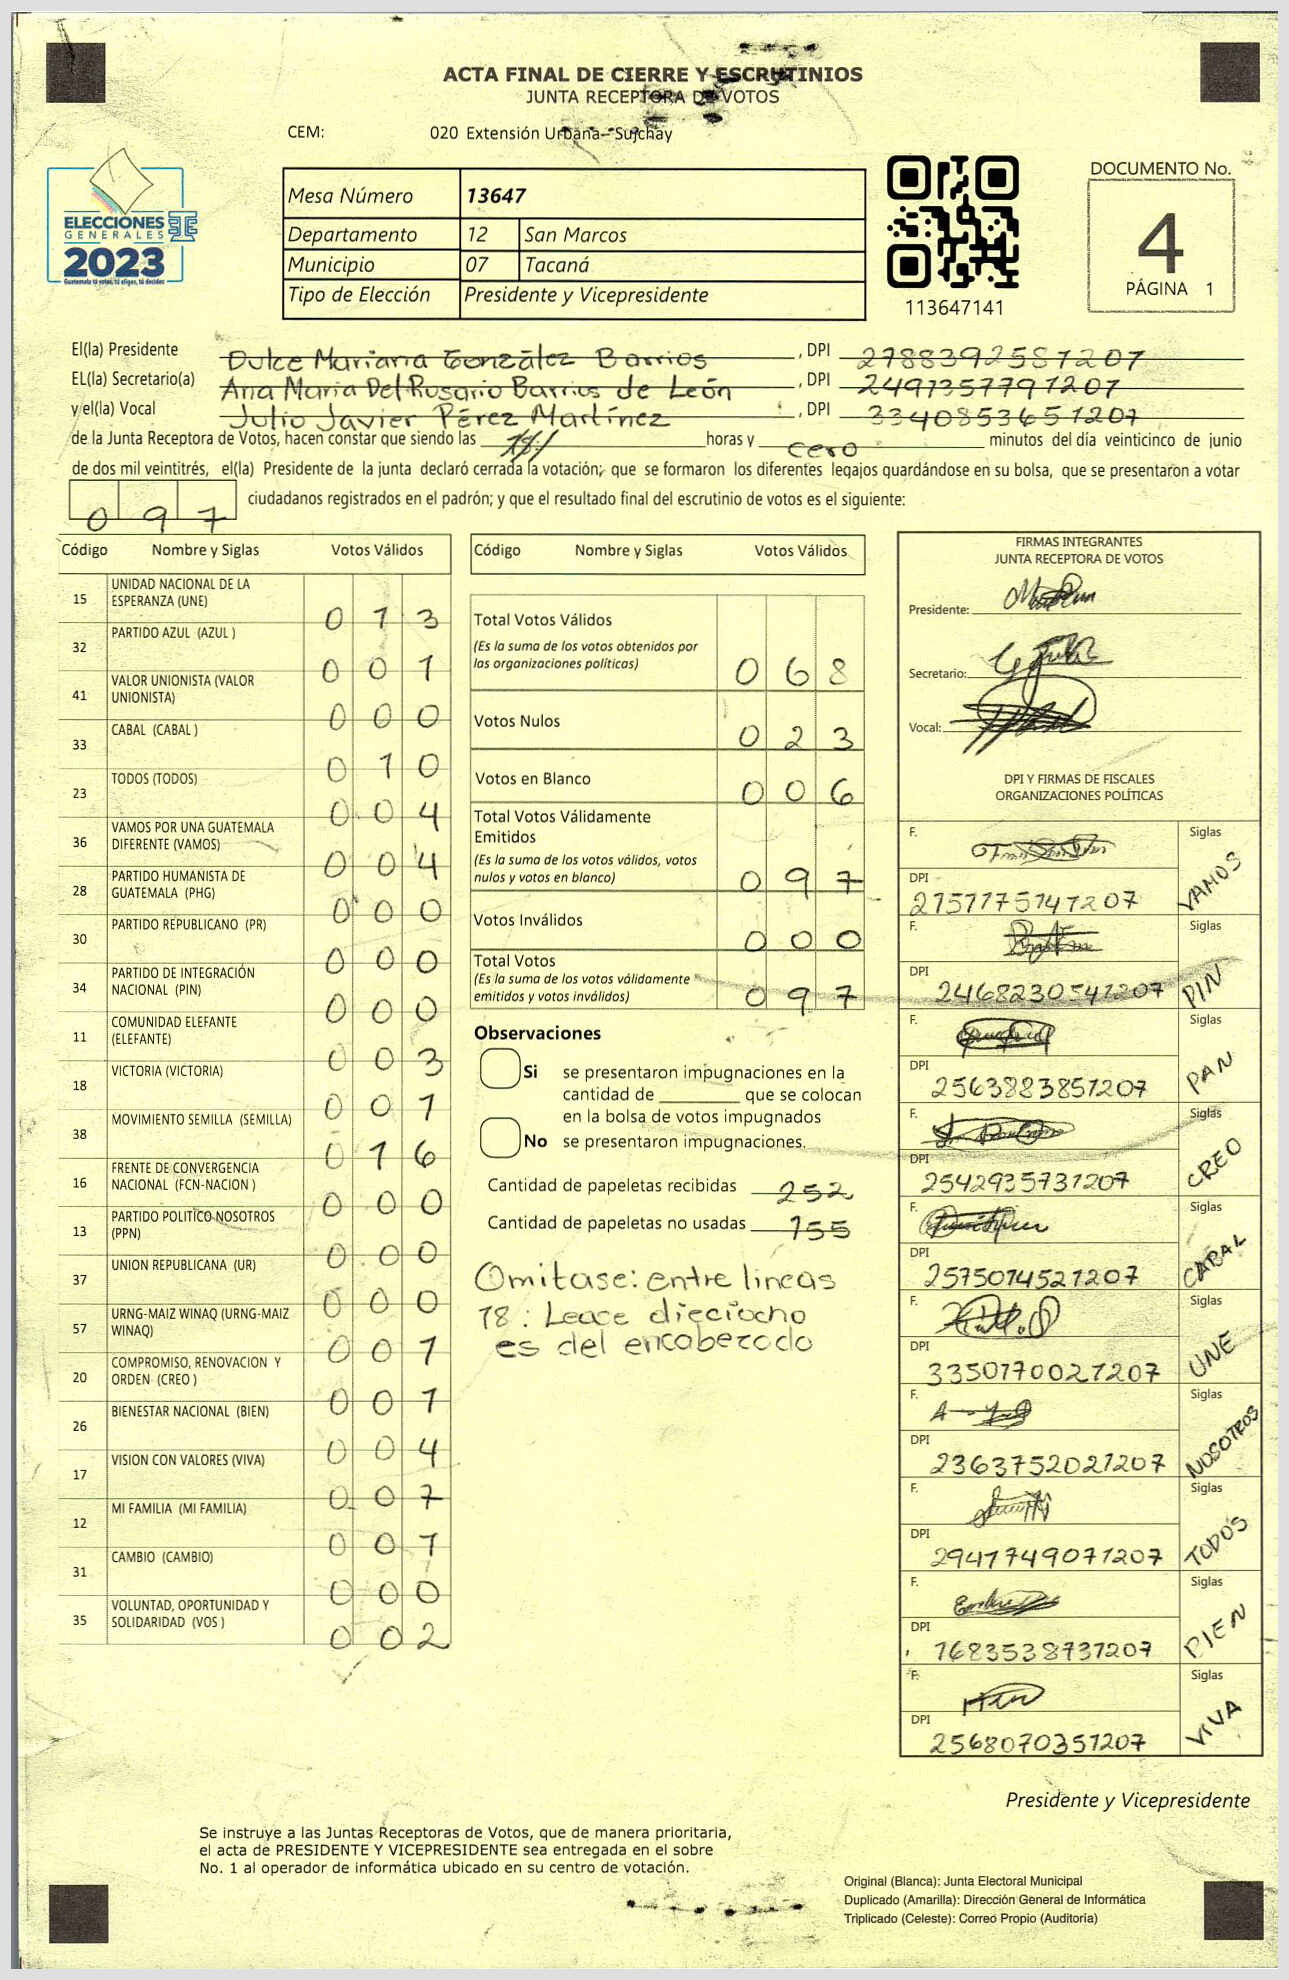 ACTA FINAL DE CIERRE Y ESCRUTINIOS
JUNTA RECEPTORA DE VOTOS
CEM: 020 Extensión Urbana- Sujchay
ELECCIONES
GENERALES
2023
Guatemala tú votas, tú eliges, tú decides
Mesa Número 13647
Departamento 12 San Marcos
Municipio 07 Tacaná
Tipo de Elección Presidente y Vicepresidente
113647141
DOCUMENTO No.
4
PÁGINA 1
El(la) Presidente Dulce Mariana González Barrios , DPI 2788392581207
EL(la) Secretario(a) Ana Maria Del Rosario Barrios de León , DPI 2491357791207
y el(la) Vocal Julio Javier Pérez Martínez , DPI 3340853651207
de la Junta Receptora de Votos, hacen constar que siendo las 18 horas y cero minutos del día veinticinco de junio
de dos mil veintitrés, el(la) Presidente de la junta declaró cerrada la votación; que se formaron los diferentes legajos quardándose en su bolsa, que se presentaron a votar
097 ciudadanos registrados en el padrón; y que el resultado final del escrutinio de votos es el siguiente:
Código Nombre y Siglas Votos Válidos
15 UNIDAD NACIONAL DE LA ESPERANZA (UNE) 013
32 PARTIDO AZUL (AZUL ) 001
41 VALOR UNIONISTA (VALOR UNIONISTA) 000
33 CABAL (CABAL ) 010
23 TODOS (TODOS) 004
36 VAMOS POR UNA GUATEMALA DIFERENTE (VAMOS) 004
28 PARTIDO HUMANISTA DE GUATEMALA (PHG) 000
30 PARTIDO REPUBLICANO (PR) 000
34 PARTIDO DE INTEGRACIÓN NACIONAL (PIN) 000
11 COMUNIDAD ELEFANTE (ELEFANTE) 003
18 VICTORIA (VICTORIA) 001
38 MOVIMIENTO SEMILLA (SEMILLA) 016
16 FRENTE DE CONVERGENCIA NACIONAL (FCN-NACION ) 000
13 PARTIDO POLITICO NOSOTROS (PPN) 000
37 UNION REPUBLICANA (UR) 000
57 URNG-MAIZ WINAQ (URNG-MAIZ WINAQ) 001
20 COMPROMISO, RENOVACION Y ORDEN (CREO ) 001
26 BIENESTAR NACIONAL (BIEN) 004
17 VISION CON VALORES (VIVA) 007
12 MI FAMILIA (MI FAMILIA) 001
31 CAMBIO (CAMBIO) 000
35 VOLUNTAD, OPORTUNIDAD Y SOLIDARIDAD (VOS ) 002
Código Nombre y Siglas Votos Válidos
Total Votos Válidos
(Es la suma de los votos obtenidos por
las organizaciones políticas) 068
Votos Nulos 023
Votos en Blanco 006
Total Votos Válidamente
Emitidos
(Es la suma de los votos válidos, votos
nulos y votos en blanco) 097
Votos Inválidos 000
Total Votos
(Es la suma de los votos válidamente
emitidos y votos inválidos) 097
Observaciones
Si se presentaron impugnaciones en la
cantidad de ________ que se colocan
en la bolsa de votos impugnados
No se presentaron impugnaciones.
Cantidad de papeletas recibidas 252
Cantidad de papeletas no usadas 155
Omitase: entre lineas
18: Lease dieciocho
es del encabezado
FIRMAS INTEGRANTES
JUNTA RECEPTORA DE VOTOS
Presidente:
Secretario:
Vocal:
DPI Y FIRMAS DE FISCALES
ORGANIZACIONES POLÍTICAS
F. Siglas VAMOS
DPI 2757775141207
F. Siglas PIN
DPI 2468230541207
F. Siglas PAN
DPI 2563883851207
F. Siglas CREO
DPI 2542935731207
F. Siglas CABAL
DPI 2575014521207
F. Siglas UNE
DPI 3350170021207
F. Siglas NOSOTROS
DPI 2363752021207
F. Siglas TODOS
DPI 2941749071207
F. Siglas BIEN
DPI 1683538731207
F. Siglas VIVA
DPI 2568070351207
Presidente y Vicepresidente
Se instruye a las Juntas Receptoras de Votos, que de manera prioritaria,
el acta de PRESIDENTE Y VICEPRESIDENTE sea entregada en el sobre
No. 1 al operador de informática ubicado en su centro de votación.
Original (Blanca): Junta Electoral Municipal
Duplicado (Amarilla): Dirección General de Informática
Triplicado (Celeste): Correo Propio (Auditoría)